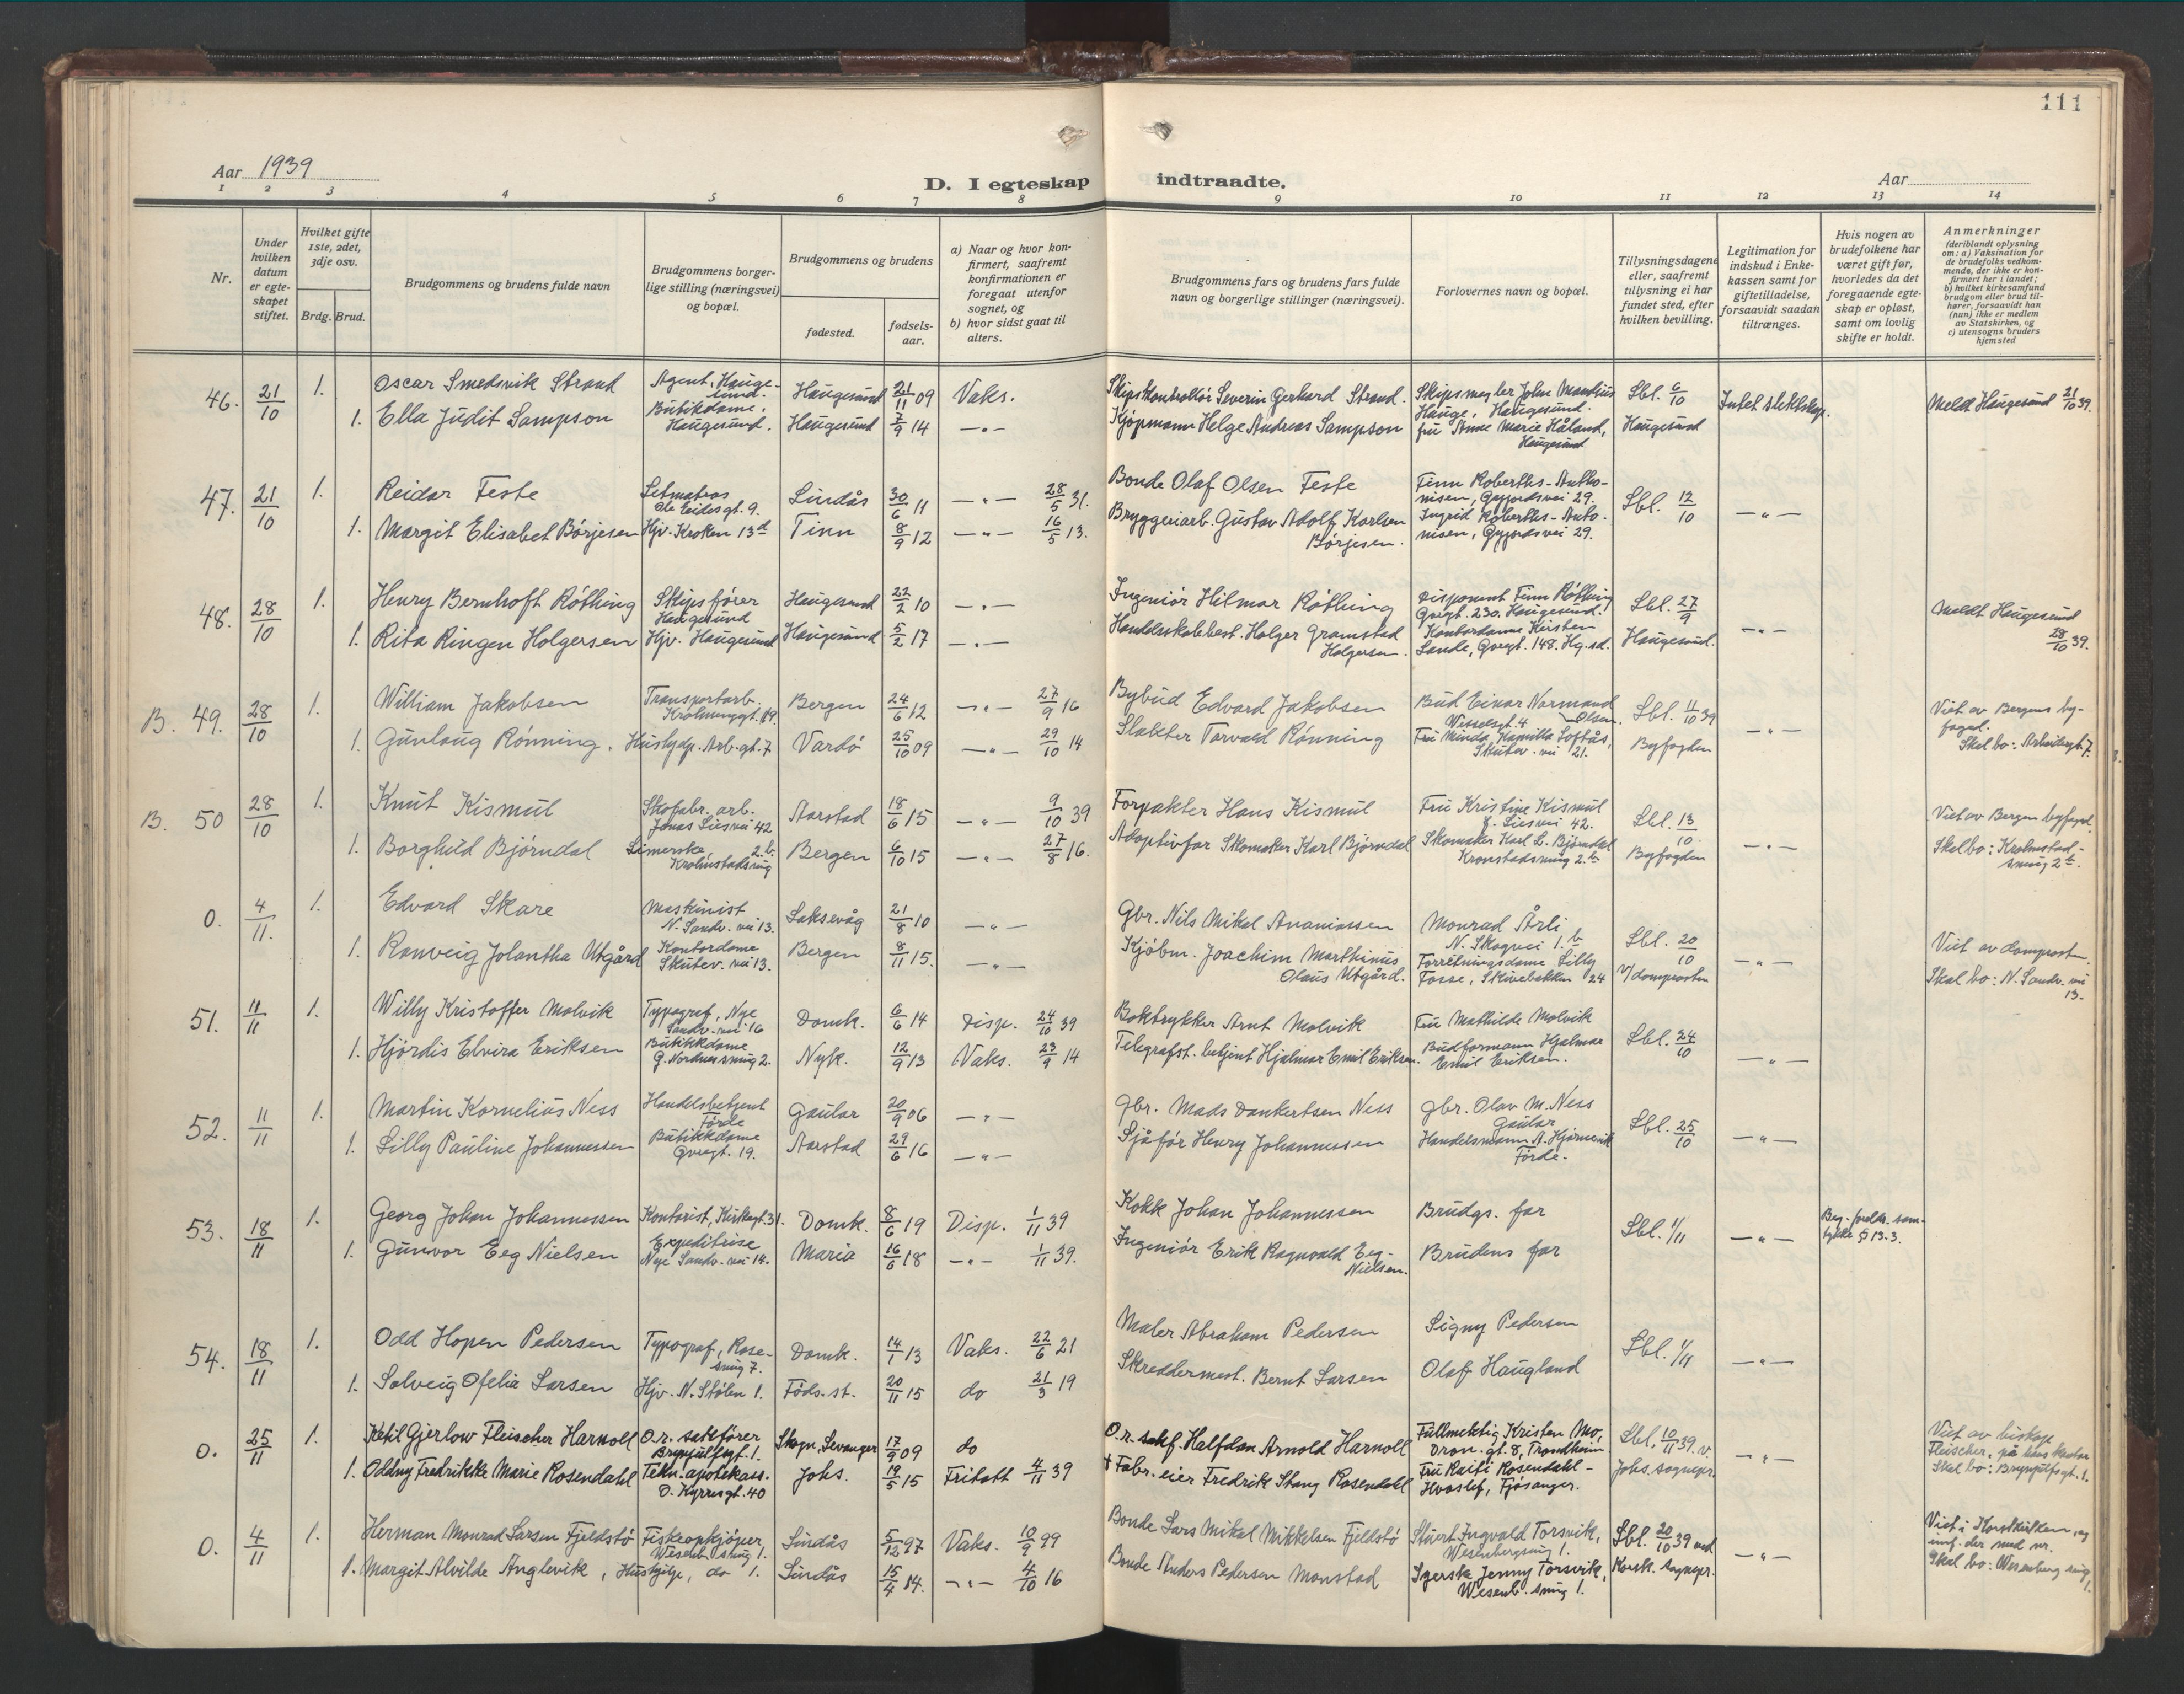 111
Aar 1939
D. I egteskap indtraadte.
Aar
1 2 3 4 5 6 7 8 9 10 11 12 13 14
Nr.
Under hvilken datum er egte-skapet stiftet.
Hvilket gifte 1ste, 2det, 3dje osv.
Brdg. Brud.
Brudgommens og brudens fulde navn
Brudgommens borger-lige stilling (næringsvei) og bopæl.
Brudgommens og brudens
fødested.
fødsels-aar.
a) Naar og hvor kon-firmert, saafremt konfirmationen er foregaat utenfor sognet, og
b) hvor sidst gaat til alters.
Brudgommens fars og brudens fars fulde navn og borgerlige stillinger (næringsvei).
Forlovernes navn og bopæl.
Tillysningsdagene eller, saafremt tillysning ei har fundet sted, efter hvilken bevilling.
Legitimation for indskud i Enke-kassen samt for giftetilladelse, forsaavidt saadan tiltrænges.
Hvis nogen av brudefolkene har været gift før, hvorledes da det foregaaende egte-skap er opløst, samt om lovlig skifte er holdt.
Anmerkninger
(deriblandt oplysning om: a) Vaksination for de brudefolks vedkom-mende, der ikke er kon-firmert her i landet; b) hvilket kirkesamfund brudgom eller brud til-hører, forsaavidt han (hun) ikke er medlem av Statskirken, og c) utensogns bruders hjemsted
46. 21/10 1. Oscar Smedsvik Strand Agent, Hauge-sund. Haugesund 21/11 09 Vaks. Skipskontrollør Severin Gerhard Strand. Skipsmegler John Mandius Hauge, Haugesund. Lbl. 6/10 Intet slektskap. Meldt Haugesund 21/10 39.
1. Ella Judit Sampson Butikdame, Haugesund. Haugesund 7/9 14 —"— Kjøpmann Helge Andreas Sampson fru Anne Marie Håland, Haugesund Haugesund
47. 21/10 1. Reidar Feste Letmatros Ole Eidesgt. 9. Lindås 30/6 11 —"— 28/5 31. Bonde Olaf Olsen Feste Finn Roberths-Antho-nisen, vei 29. Lbl. 12/10 —"—
1. Margit Elisabet Börjesen Hjv. Kroken 13d Tinn 8/9 12 —"— 16/5 13. Bryggeriarb. Gustav Adolf Karlsen Börjesen. Ingrid Roberths-Anto-nisen, vei 29.
48. 28/10 1. Henry Bernhoft Röthing Skipsfører Haugesund Haugesund 22/2 10 —"— Ingeniör Hilmar Röthing Disponent Finn Röthing Gvegt. 230, Haugesund. Lbl. 27/9 —"— Meldt Haugesund 28/10 39.
1. Rita Ringen Holgersen Hjv. Haugesund Haugesund 5/2 17 —"— Handelsskolebest. Holger Gramstad Holgersen. Kontordame Kirsten Lande, Gvegt. 148. Hg.sd. Haugesund.
B. 49. 28/10 1. William Jakobsen Transportarb. Bergen 24/6 12 —"— 27/9 16 Bybud Edvard Jakobsen Bud Einar Normand Olsen. Wesselsgt. 4 Lbl. 11/10 39 —"— Viet av Bergens by-foged.
1. Gunlaug Rönning. Arb.gt. 7 Vardö 25/10 09 —"— 29/10 14 Slakter Torvald Rönning Fru Minda Kamilla Loftås, Skutev. vei 21. Byfogden Skal bo: Arbeidergt. 7.
B. 50 28/10 1. Knut Kismul Skofabr. arb. Jonas Liesvei 42 Aarstad 18/6 15 —"— 9/10 39 Forpakter Hans Kismul Fru Kristine Kismul J. Liesvei 42. Lbl. 13/10. —"— Viet av Bergen byfogd.
1. Borghild Björndal Limerske, Kronstadsmug 2.b. Bergen 6/10 15 —"— 27/8 16. Adoptivfar Skomaker Karl Björndal Skomaker Karl L. Björndal Kronstadsmug 2.b Byfogden Skal bo: Krohnstad-smug 2b.
O. 4/11. 1. Edvard Skare Maskinist N. Sandv. vei 13. Laksevåg 21/8 10 —"— Gbr. Nils Mikal Ananiassen Monrad Årli N. Skogvei 1.b Lbl. 20/10 —"— Viet av domprosten.
1. Ranveig Jolantha Utgård Kontordame Skutev. vei 13. Bergen 8/11 15. —"— Kjöbm. Joachim Marthinus Olaus Utgård. Forretningsdame Lilly Fosse, Skivebakken 24 v/domprosten Skal bo: N. Sandv. vei 13.
51. 11/11 1. Willy Kristoffer Molvik Typograf, Nye Sandv. vei 16 Domk. 6/6 14 Disp. 24/10 39 Boktrykker Arnt Molvik Fru Mathilde Molvik Lbl. 24/10 —"—
1. Hjördis Elvira Eriksen Butikkdame G. Nordnessmug 2. Nyk. 12/9 13 Vaks. 23/9 14 Telegrafst. betjent Hjalmar Emil Eriksen. Budformann Hjalmar Emil Eriksen.
52. 11/11 1. Martin Kornelius Ness Handelsbetjent Förde Gaular 20/9 06 —"— Gbr. Mads Dankertsen Ness Gbr. Olav M. Ness Gaular Lbl. 25/10 —"—
1. Lilly Pauline Johannessen Butikkdame Gvegt. 19. Aarstad 29/6 16 —"— Sjåför Henry Johannessen Handelsmann A. Hjörnevik Förde.
53. 18/11 1. Georg Johan Johannessen Kontorist, Kirkegt. 31. Domk. 8/6 19 Disp. 1/11 39 Kokk Johan Johannessen Brudgs. far Lbl. 1/11 —"— Beg. foreldr. sam-tykke § 13.3.
1. Gunvor Eeg Nielsen Expeditrise Nye Sandv. vei 14. Maria 16/6 18 —"— 1/11 39. Ingeniör Erik Ragnvald Eeg-Nielsen. Brudens far
54. 18/11 1. Odd Hopen Pedersen Typograf, Rose-smug 7. Domk. 14/1 13 Vaks. 22/6 21 Maler Abraham Pedersen Signy Pedersen Lbl. 1/11 —"—
1. Solveig Ofelia Larsen Hjv. N. Stölen 1. Föds.st. 20/11 15 do 21/3 19 Skreddermest. Bernt Larsen Olaf Haugland
O. 25/11 1. Ketil Gjerlow Fleischer Harnoll O.r. sakfører Brynjulfsgt. 1. Skogn, Levanger 17/9 09 do O.r. sakf. Halfdan Arnold Harnoll Fullmektig Kristen Mo, Dron. gt. 8, Trondheim Lbl. 10/11 39. v. —"— Viet av biskop Fleischer, på hans kontor
1. Oddny Fredrikke Marie Rosendahl Tekn. apotekass. O. Kyrresgt. 40 Johs. 14/5 15 Fritatt 4/11 39 † Fabr. eier Fredrik Stang Rosendahl Fru Raiti Rosendahl-Hvoslef, Fjösanger. Johs. sognepr. Skal bo: Brynjulfsgt. 1.
O. 4/11 1. Herman Monrad Larsen Fjeldstö Fiskeopkjöper, Wesenb. smug 1. Lindås 5/12 97 Vaks. 10/9 99 Bonde Lars Mikal Mikkelsen Fjeldstö Stuert Ingvald Torsvik, Wesenbergsmug 1. Lbl. 20/10 39 ved —"— Viet i Korskirken, og innf. der med nr.
1. Margit Alvilde Anglevik, Hushjelp, do 1. Lindås 15/4 14. —"— 4/10 16 Bonde Anders Pedersen Monstad Jenny Torsvik, Wesenb. smug 1. Korsk. sognepr. Skal bo: Wesenberg smug 1.